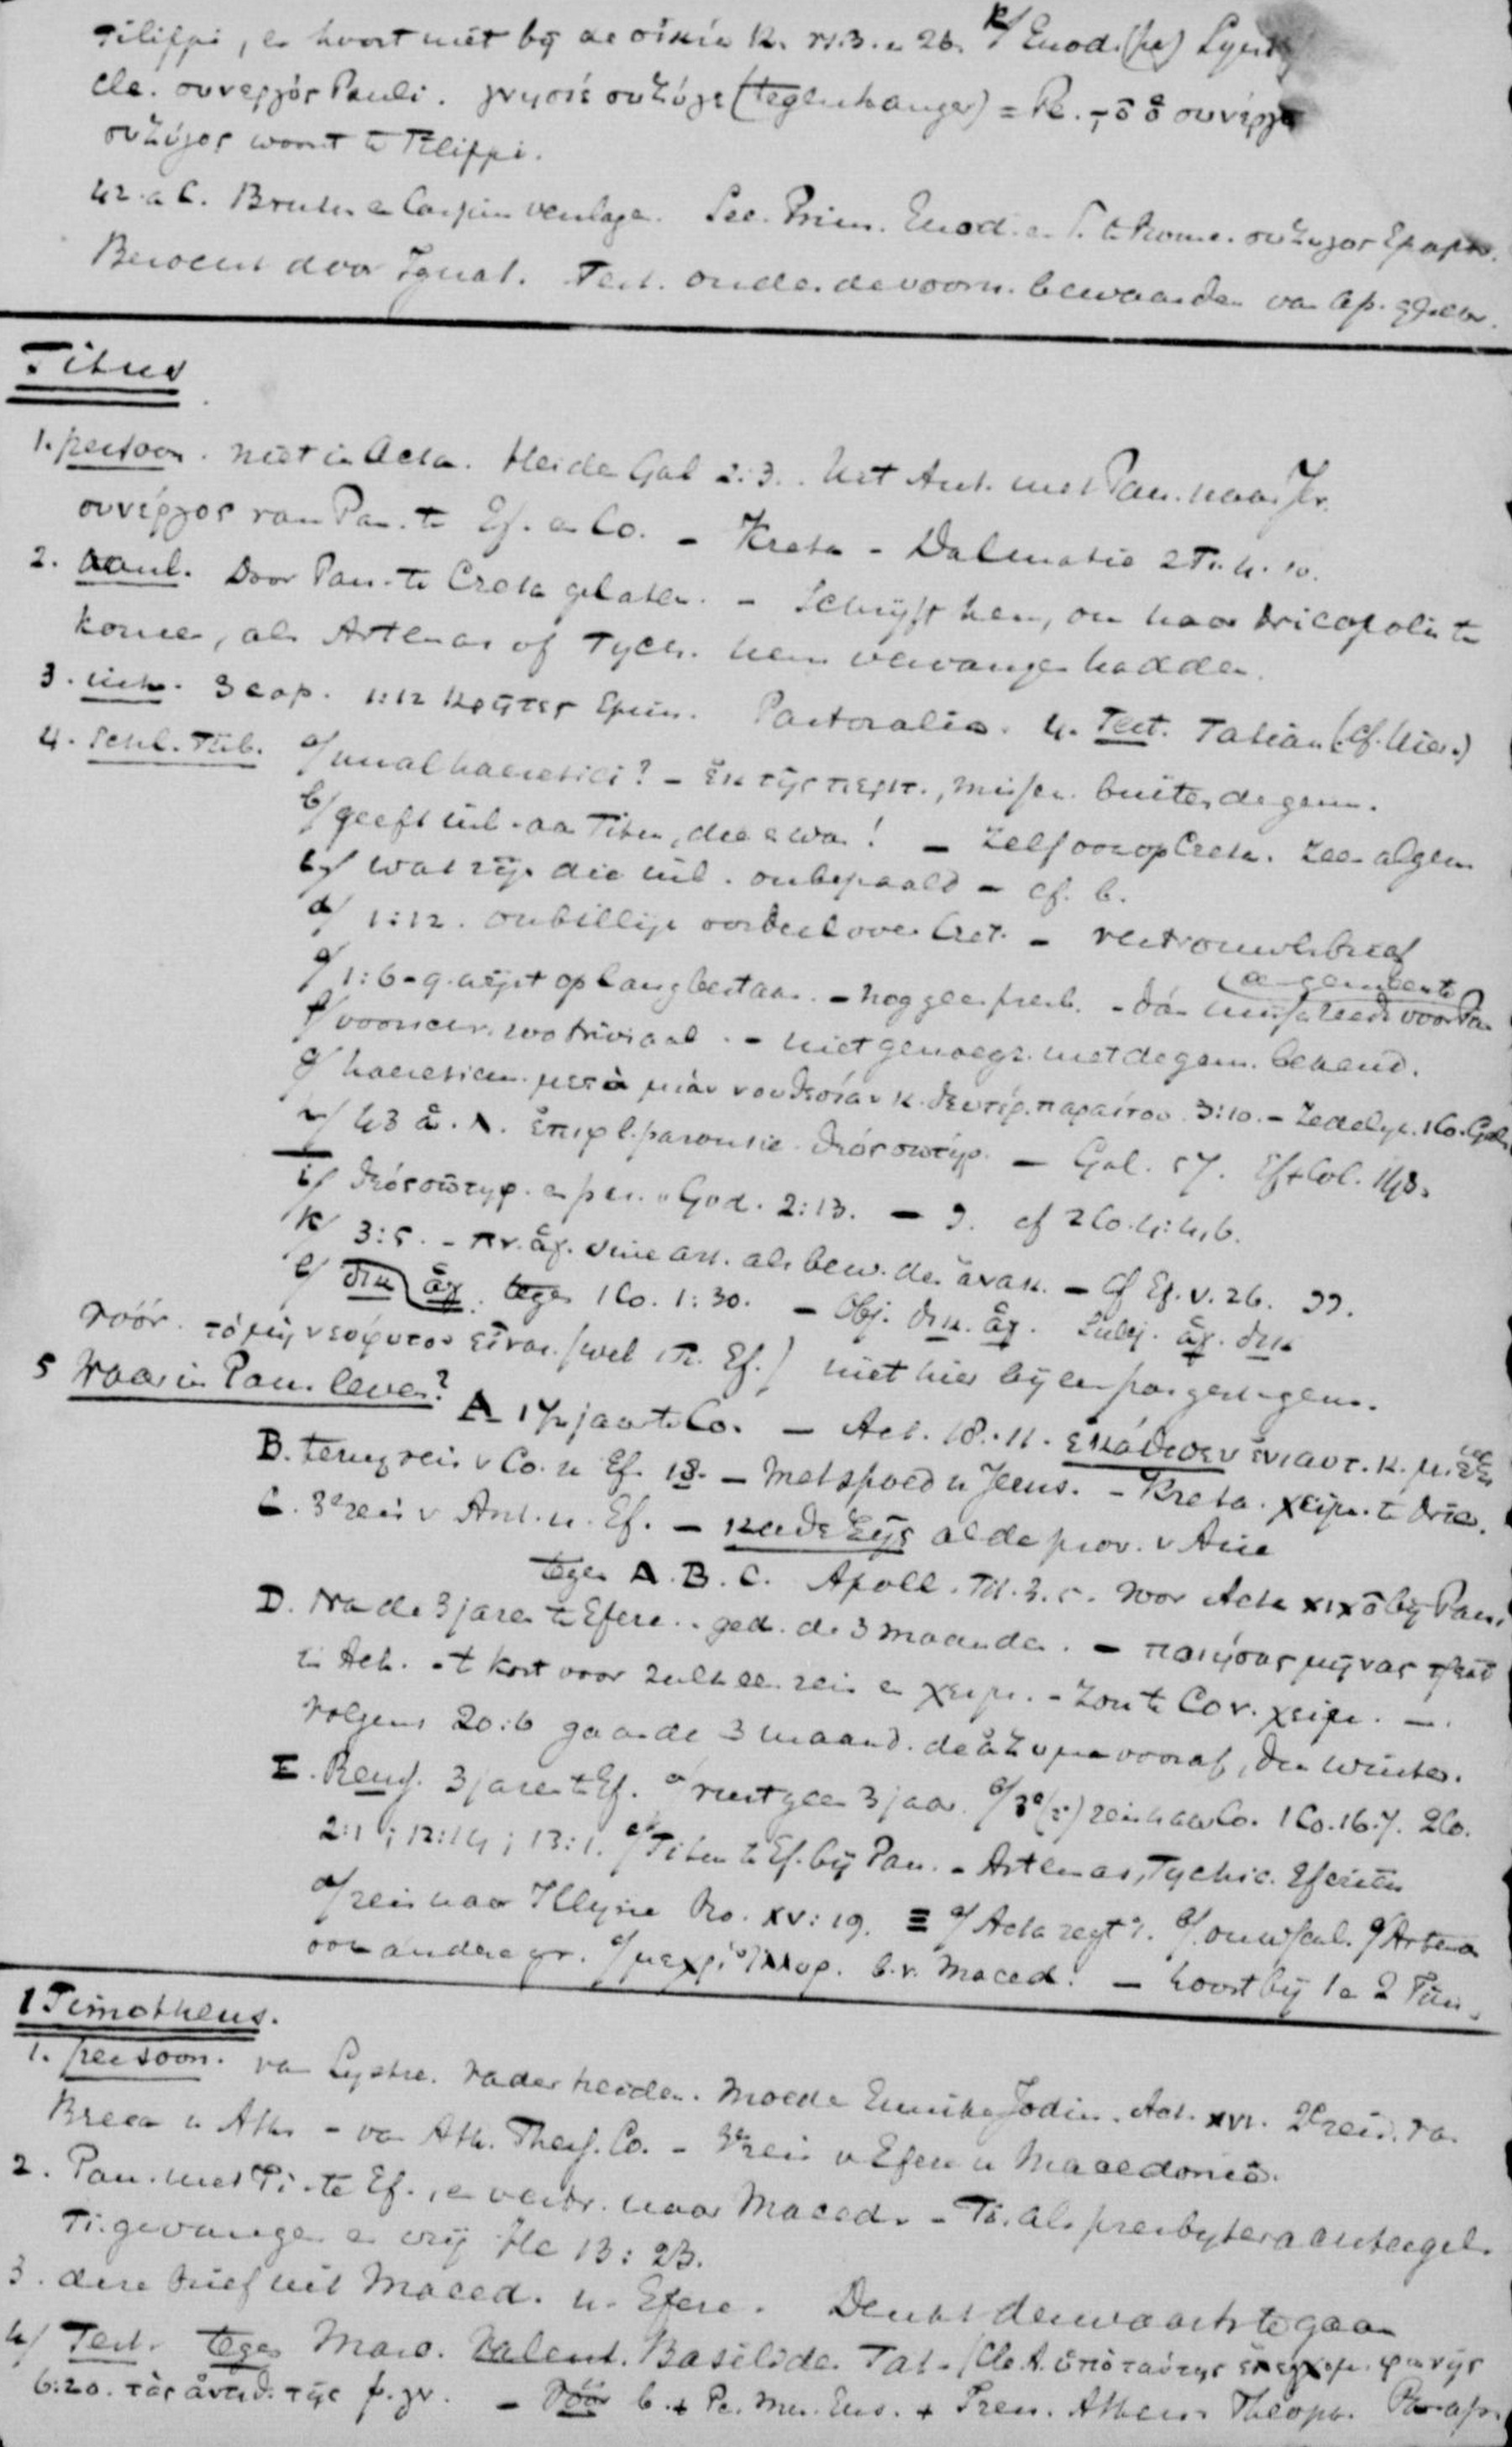 Filippi, en hoort niet bij de οἰκία K. vs. 3. n 26. k/ Euod. (pe) Synt
Cle. συνεργός Pauli. γνησιέ συζύγε (tegenhanger) = Pe.
συζύγος woont te Filippi.
42. a C. Brutus en Cassius verslagen. Sec. Prim. Euod. en S. te Rome. συζυγος Epapro.
Bezocht door Ignat. Test. onder de voorn. bewaarders van ap.
Titus
1. persoon. niet in Acta. Heiden Gal 2:3. Uit Ant. met Pau. naar Jr.
συνέργος van Pau. te Ef. en Co. – Kreta – Dalmatie 2 Ti. 4. 10.
2. aanl. Door Pau. te Creta gelaten. – Schrijft hem, om naar Nicopolis te
komen, als Artemas of Tych. hem vervangen hadden.
3. inh. 3 cap. 1:12 Κρῆτες Epim. Pastoralia. 4. Test. Tatian (cf. Hier.)
4. Schl. Tüb. a/ unal haeretici? – ἐκ τῆς περιτ., buiten de gem.
b/ geeft inl. aan Titus, die er was! – Zelf ook op Creta. Zeer algem
c/ wat zijn die inl. onbepaald – cf. b.
d/ 1:12. onbillijk oordeel over Cret. – vertrouwelibrief
e/ 1:6-9. wijst op lang bestaan. – nog geen presb. – dan reeds voor Pau
de gemeente
f/ voorschr. zoo triviaal. – niet genoegz. met de gem. bekend.
g/ haeretici. μετὰ μιὰν νουθεσίαν κ. δευτέρ. παραίτου 3:10. – Zedelijk. 1 Co. Gal.
h/ 43 ἅ. λ. ἐπιφ. parousie. θεός σωτήρ. – Gal. 57. Ef + Col. 143.
i/ θεός σωτηρ. en pers. v God. 2:13. – J. cf 2 Co. 4:4, 6.
k/ 3:5. – πν. ἅγ. als bew. der ἀνακ. – Cf Ef. v. 26. JJ.
l/ δικ ἁγ. tegen 1 Co. 1:30. – Obj. δικ. ἁγ. Subj. ἁγ. δικ
vóór. τό μή νεόφυτον εἶναι (wel 1 Ti. Ef.) niet hier bij een pas gest. gem.
5 Waar in Pau. leven? A 1½ jaar te Co. – Act. 18:11. ἐκάθισεν ἐνιαυτ. κ. μ. ἕξ
B. terugreis v Co. n Ef. 18. – Met spoed n Jerus. – Kreta. χειμ. te Nic.
C. 3e reis v Ant. n. Ef. – καθεξῆς al de prov. v Azie
tegen A. B. C. Apoll. Tit. 3. 5. voor Acta XIX ō bij Pau.
D. Na de 3 jaren te Efeze. ged. de 3 maanden. – ποιήσας μῆνας τρεῖς
in Ach. – t kort voor zulk een reis en χειμ. – Zou te Cor. χειμ. –.
Volgens 20:6 gaan de 3 maand. de ἀζυμα vooraf, dus winter.
E. Reuss. 3 jaren te Ef. a/ rust geen 3 jaar. b/ 3e (2e) reis naar Co. 1 Co. 16:7. 2 Co.
2:1; 12:14; 13:1. c/ Titus te Ef. bij Pau. – Artemas, Tychic. Efeziërs
d/ reis naar Illyrie Ro. XV:19. ≡ a/ Acta zegt ō. b/ c/ Artema
ook andere gr. d/ μεχρὶ Ἰλλυρ. b.v. Maced. – hoort bij 1 en 2 Tim.
1 Timotheus.
1. persoon. van Lystre. Vader heiden. Moeder Eunike Jodin. Act. XVI. 2e reis. van
Berea n Ath. – van Ath. Thess. Co. – 3e reis v Efeze n Macedonië.
2. Pau. met Ti. te Ef., en vertr. naar Maced. – Ti. als presbyter aangesteld.
Ti. gevangen en vrij He 13:23.
3. deze brief uit Maced. n. Efeze. Denkt derwaarts te gaan
4/ Test. tegen Marc. Valent. Basilide. Tat. (Cle A. ὑπὸ ταύτης ἐλεγχομ. φωνῆς
6:20. τὰς ἀντιθ. τῆς ψ. γν. – Vóór 6. + Pe. Mur. Eus. + Iren. Athen. Theoph.